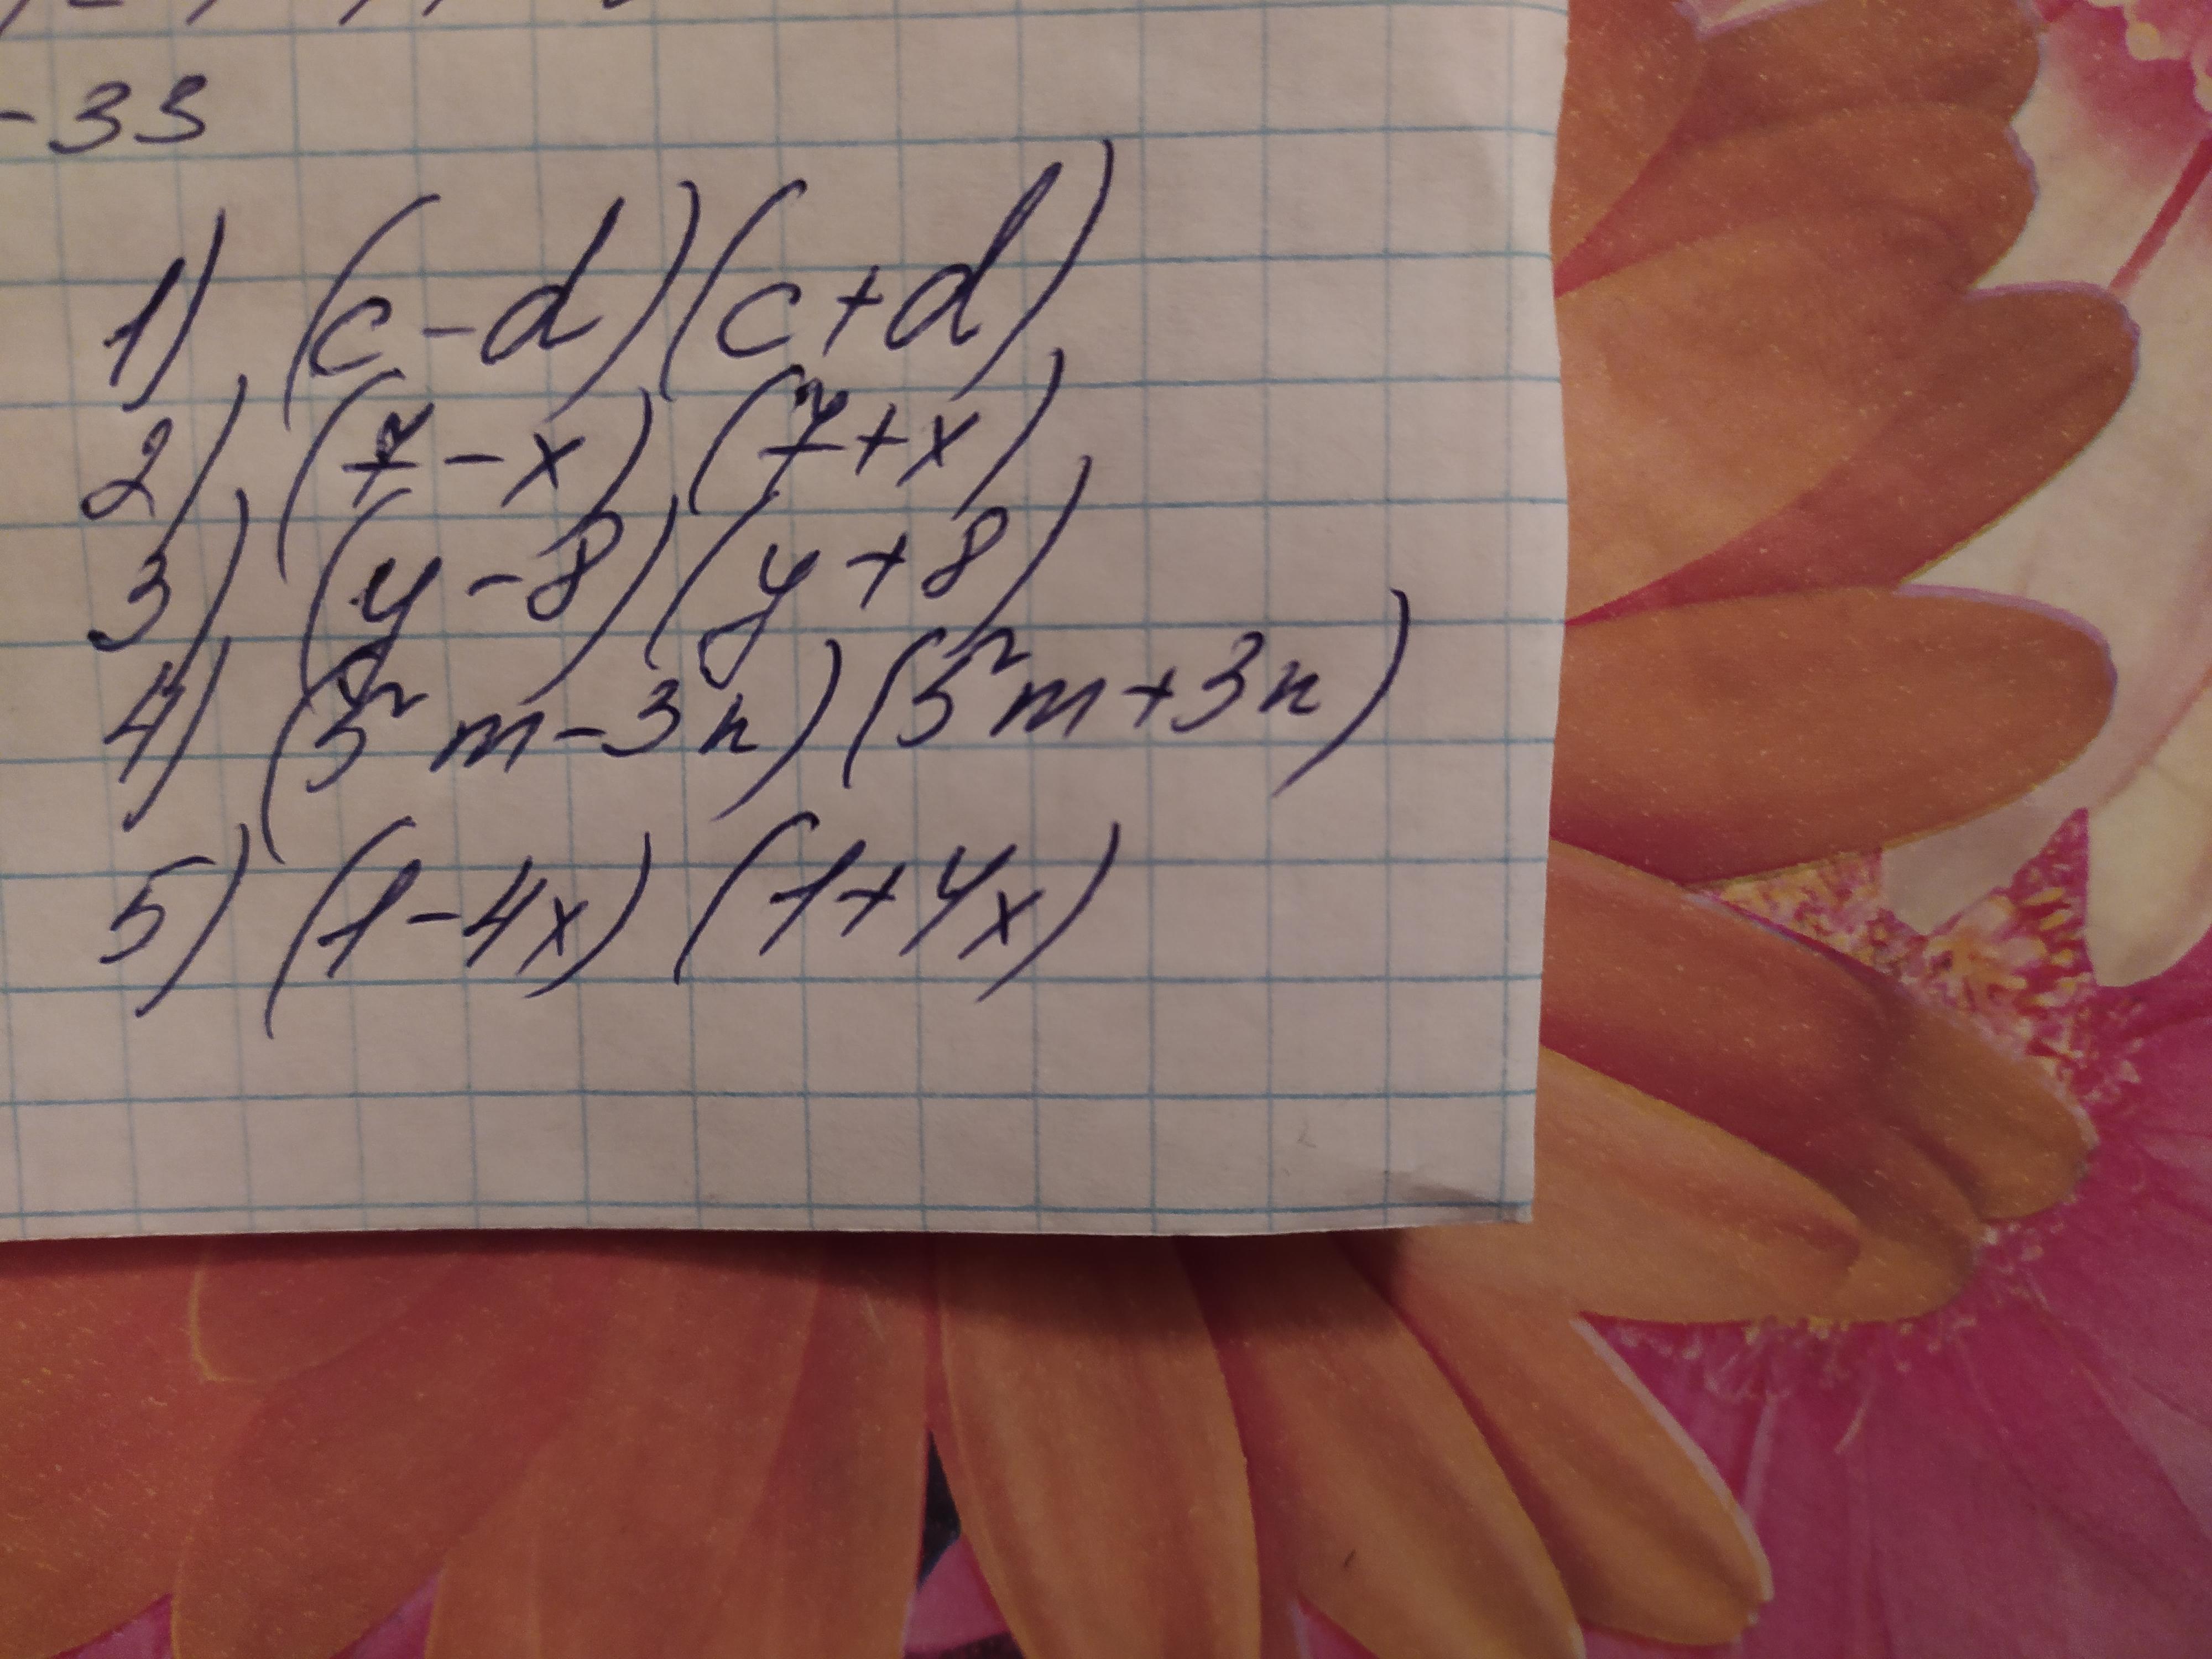 -33
1) (c-d)(c+d)
2) (7-x)(7+x)
3) (y-8)(y+8)
4) (5m-3n)(5m+3n)
5) (1-4x)(1+4x)